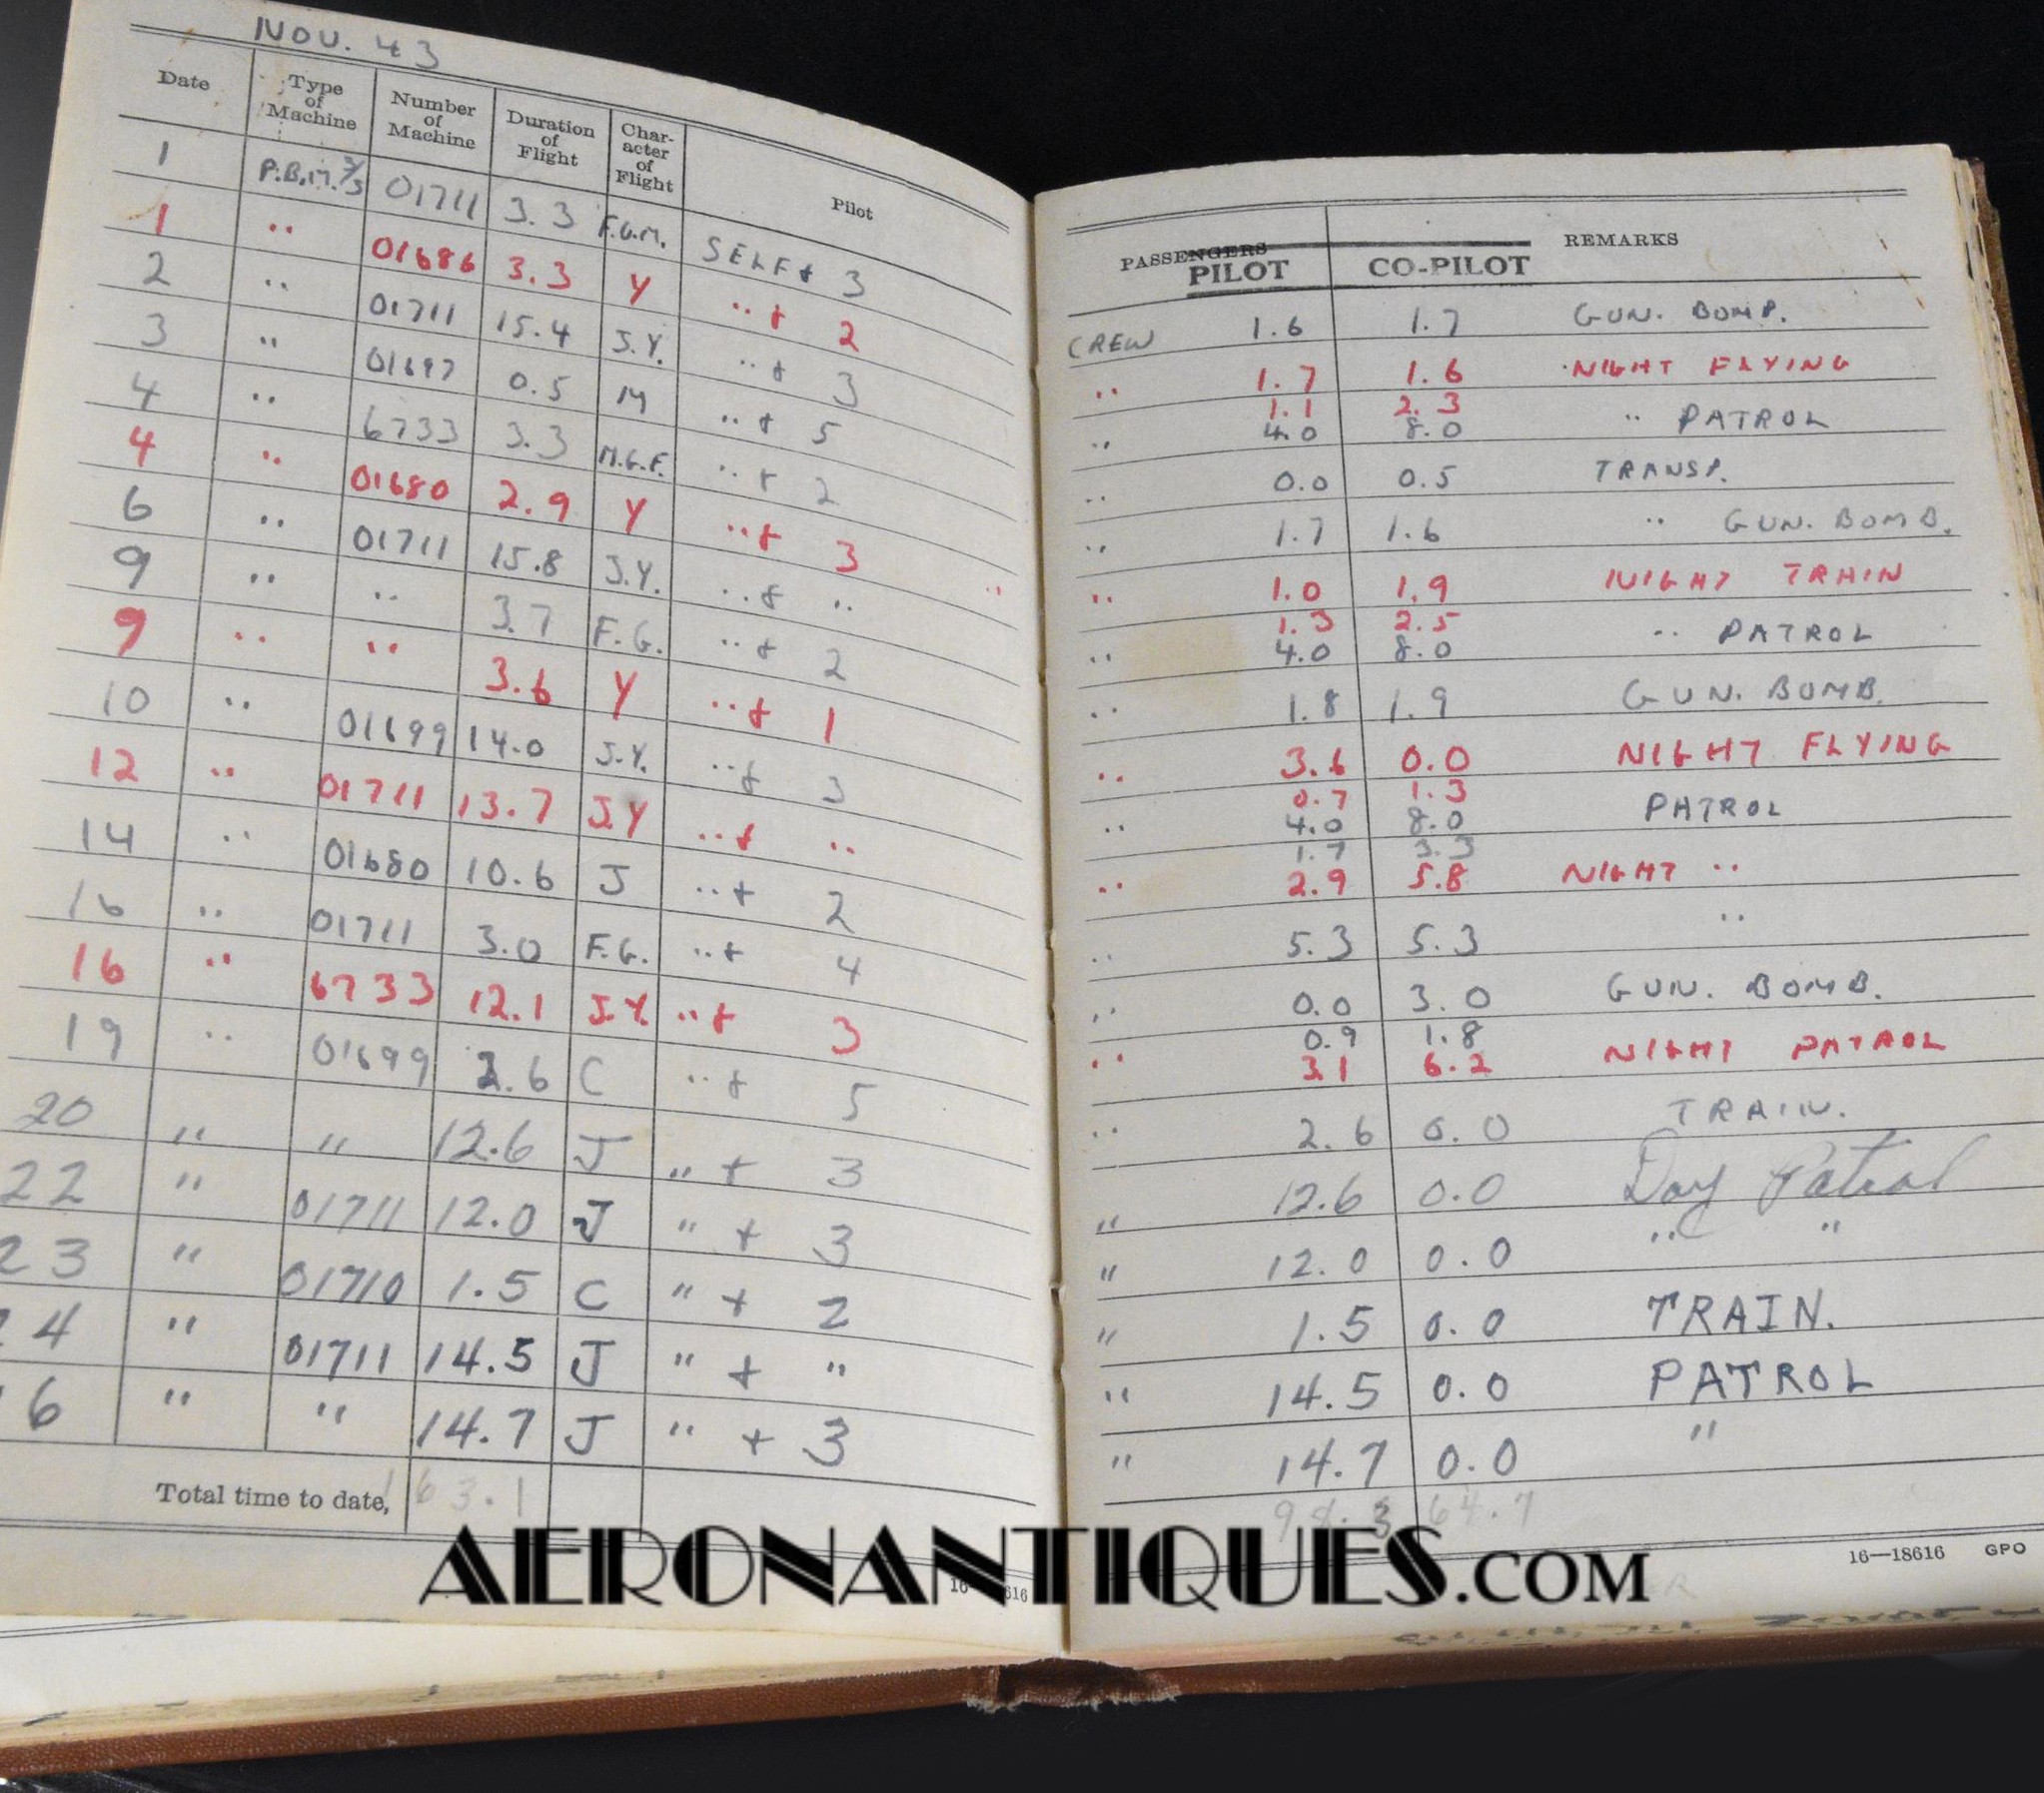 NOV. 43
Date Type of Machine Number of Machine Duration of Flight Char-acter of Flight Pilot
1 P.B.M. 3/S 01711 3.3 F.G.M. SELF + 3
1 .. 01686 3.3 Y .. + 2
2 .. 01711 15.4 J.Y. .. + 3
3 .. 01697 0.5 M .. + 5
4 .. 6733 3.3 M.G.F. .. + 2
4 .. 01680 2.9 Y .. + 3
6 .. 01711 15.8 J.Y. .. + ..
9 .. .. 3.7 F.G. .. + 2
9 .. .. 3.6 Y .. + 1
10 .. 01699 14.0 J.Y. .. + 3
12 .. 01711 13.7 J.Y .. + ..
14 .. 01680 10.6 J .. + 2
16 .. 01711 3.0 F.G. .. + 4
16 .. 6733 12.1 J.Y. .. + 3
19 .. 01699 2.6 C .. + 5
20 " " 12.6 J " + 3
22 " 01711 12.0 J " + 3
23 " 01710 1.5 C " + 2
24 " 01711 14.5 J " + "
6 " " 14.7 J " + 3
Total time to date, 163.1
PASSENGERS REMARKS
PILOT CO-PILOT
CREW 1.6 1.7 GUN. BOMB.
.. 1.7 1.6 NIGHT FLYING
1.1 2.3
.. 4.0 8.0 .. PATROL
.. 0.0 0.5 TRANSP.
.. 1.7 1.6 .. GUN. BOMB.
.. 1.0 1.9 NIGHT TRAIN
1.3 2.5
.. 4.0 8.0 .. PATROL
.. 1.8 1.9 GUN. BOMB.
.. 3.6 0.0 NIGHT FLYING
0.7 1.3
.. 4.0 8.0 PATROL
1.7 3.3
.. 2.9 5.8 NIGHT ..
.. 5.3 5.3 ..
.. 0.0 3.0 GUN. BOMB.
0.9 1.8
.. 3.1 6.2 NIGHT PATROL
.. 2.6 0.0 TRAIN.
" 12.6 0.0 Day Patrol
" 12.0 0.0 " "
" 1.5 0.0 TRAIN.
" 14.5 0.0 PATROL
" 14.7 0.0 "
98.3 64.7
16—18616 GPO
AERONANTIQUES.COM